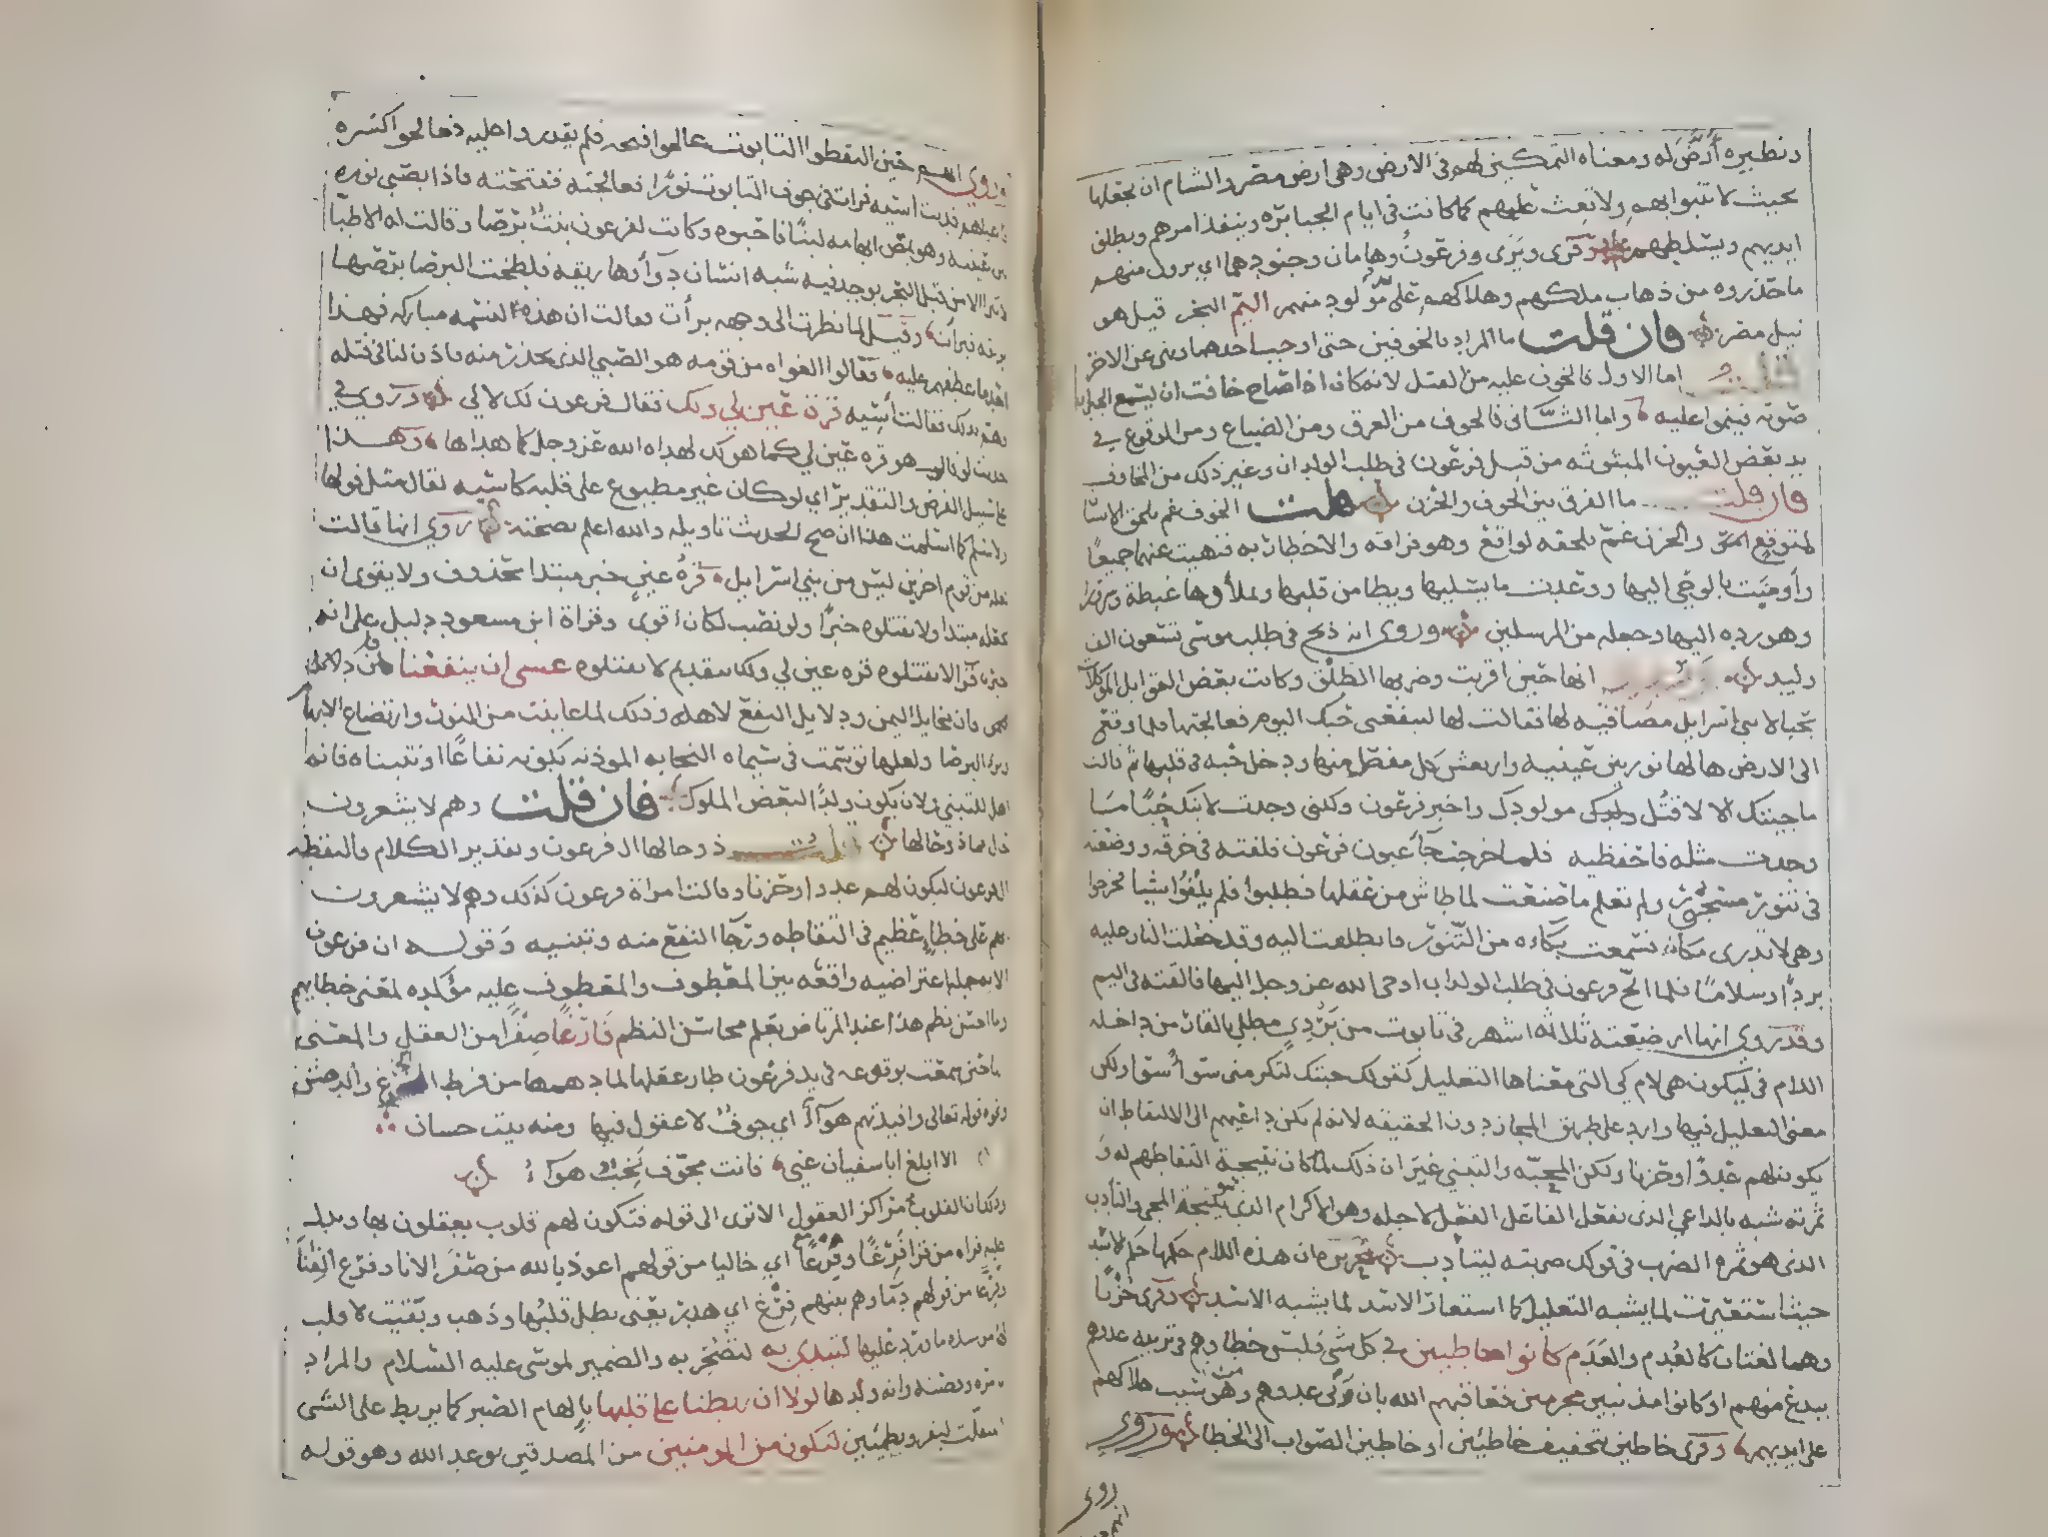 ونظيره أرَّض له ومعناه التمكين لهم في الارض وهي ارض مصر والشام ان يجعلها
بحيث لا تنبوا بهم ولا تغث عليهم كما كانت في ايام الجبابره وينفذ امرهم ويطلق
ايديهم ويسلطهم وقرى ويَرَى وفرعونُ وهامان وجنودهما اي يرون منهم
ما حذروه من ذهاب ملكهم وهلاكهم على مولود منهم اليم البحر قيل هو
نيل مصر فان قلت ما المراد بالخوفين حتى اوجب احدهما ونهى عن الاخر
اما الاول فالخوف عليه من القتل لانه كان اذا صاح خافت ان يسمع الجيران
صوته فينموا عليه واما الثاني فالخوف من الغرق ومن الضياع ومن الوقوع في
يد بعض العيون المبثوثه من قبل فرعون في طلب الولدان وغير ذلك من المخاوف
فان قلت ما الفرق بين الخوف والحزن قلت الخوف غم يلحق الانسان
لمتوقع والحزن غم يلحقه لواقع وهو فراقه والاخطار به فنهيت عنهما جميعا
واومنت بالوحي اليها ووعدت ما يسليها ويطامن قلبها ويملأوها غبطة وسرورا
وهو رده اليها وجعله من المرسلين وروي انه ذبح في طلب موسى تسعون الف
وليد انها حين اقربت وضربها الطلق وكانت بعض القوابل الموكلات
بحبالا بني اسرايل مصافية لها فقالت لها لينفعني حبك اليوم فعالجتها فلما وقع
الى الارض هالها نور بين عينيه وارتعش كل مفصل منها ودخل حبه في قلبها ثم قالت
ما جيتك الا لاقتل مولودك واخبر فرعون ولكني وجدت لابنك حبًا ما
وجدت مثله فاحفظيه فلما خرجت جا عيون فرعون فلفته في خرقه ووضعته
في تنور مسجور ولم تعلم ما تصنعت لما طاش من عقلها فطلبوا فلم يلفوا شيا فخرجوا
وهي لا تدري مكانه فسمعت بكاءه من التنور فانطلقت اليه وقد جعلت النار عليه
بردًا وسلاما فلما الح فرعون في طلب الولدان اوحى الله عز وجل اليها فالقته في اليم
وقد روي انها ارضعته ثلاثه اشهر في تابوت من بَرْدي مطلي بالقار من داخله
اللام في ليكون هي لام كي التي معناها التعليل كقولك جيتك لتكرمني سوا سوا ولكن
معنى التعليل فيها وارد على طريق المجاز دون الحقيقه لانه لم يكن داعيهم الى الالتقاط ان
يكون لهم عدوًا وحزنا ولكن المحبه والتبني غير ان ذلك لما كان نتيجة التقاطهم له و
ثمرته شبه بالداعي الذي يفعل الفاعل الفعل لاجله وهو الاكرام الذي نتيجة المجي والتادب
الذي هو ثمرة الضرب في قولك ضربته ليتأدب وتحريره ان هذه اللام حكمها حكم الاسد
حيث استعيرت لما يشبه التعليل كما استعار الاسد لما يشبه الاسد وقرى حُزْنًا
وهما لغتان كالعُدم والعَدَم كانوا خاطيين في كل شي فليس خطاوهم في تربيه عدوهم
ببدع منهم او كانوا مذنبين مجرمين فعاقبهم الله بان ربى عدوهم ومن هو سبب هلاكهم
على ايديهم وقرى خاطين تخفيف خاطئين او خاطين الصواب الى الخطا وروي
روى
وروي انهم حين التقطوا التابوت عالجوا فتحه فلم يقدروا عليه فعالجوا كسره
فاعياهم فدنت اسيه فرات في جوف التابوت نورًا فعالجته ففتحته فاذا بصبي نوره
بين عينيه وهو يمص ابهامه لبنًا فاحبوه وكانت لفرعون بنتٌ برصا وقالت له الاطبا
لا تبرا الا من قبل البحر يوجد فيه شبه انسان دوآوها ريقه فلطخت البرصا برصها
بريقه فبرات وقيل لما نظرت الى وجهه برأت فقالت ان هذه لنسمه مباركه فهذا
احد ما عطفهم عليه فقالوا الغواه من قومه هو الصبي الذي نحذر منه فاذن لنا في قتله
وهم بذلك فقالت آسيه قرة عين لي ولك فقال فرعون لك لا لي وروي في
حديث لو قال هو قره عين لي كما هو لك لهداه الله عز وجل كما هداها وهذا
على سبيل الفرض والتقدير اي لو كان غير مطبوع على قلبه كاسيه لقال مثل قولها
ولاسلم كما اسلمت هذا ان صح الحديث تاويله والله اعلم بصحته روي انها قالت
لعله من قوم اخرين ليس من بني اسرايل قرةُ عينٍ خبر مبتدا محذوف ولا يقوى ان
تجعله مبتدا ولا تقتلوه خبرًا ولو نصب لكان اقوى وقراة ابن مسعود دليل على انه
خبر قرا لا تقتلوه قره عين لي ولك بتقديم لا تقتلوه عسى ان ينفعنا
فان مخايل اليمن ودلايل النفع لاهله وذلك لما عاينت من النور وارتضاع الابهام
وبرء البرصا ولعلها توسمت في سيماه النجابه الموذنه بكونه نفاعًا او نتبناه فانه
اهل للتبني ولان يكون ولدًا لبعض الملوك فان قلت وهم لا يشعرون
حال مما ذو حالها ذو حالها ال فرعون وتقدير الكلام فالتقطه
ال فرعون ليكون لهم عدوا وحزنا وقالت امراة فرعون كذلك وهم لا يشعرون
انهم على خطاء عظيم في التقاطه ورجا النفع منه وتبنيه وقوله ان فرعون
الايه جمله اعتراضيه واقعه بين المعطوف والمعطوف عليه موكده لمعنى خطايهم
وما احسن نظم هذا عند المرتاض بعلم محاسن النظم فارغًا صِفْرًا من العقل والمعنى
حين سمعت بوقوعه في يد فرعون طار عقلها لما دهمها من فرط والدهش
ونحوه قوله تعالى وافيدتهم هوآء اي جوفٌ لا عقول فيها ومنه بيت حسان
الا ابلغ ابا سفيان عني فانت مجوّف نَخِبٌ هوآءُ
وذلك ان القلوب مراكز العقول الا ترى الى قوله فتكون لهم قلوب يعقلون بها ويدل
عليه قراه من قرا فَرِغًا وقُرِعًا اي خاليا من قولهم اعوذ بالله من صفر الانا وقرع الفنا
وفِرْغا من قولهم دماوهم بينهم فِرْغ اي هدر يعني بطل قلبها وذهب وبقيت لا قلب
لها من شده ما ورد عليها لتبدي به لتصحر به والضمير لموسى عليه السلام والمراد
بامره وقصته وانه ولدها لولا ان ربطنا على قلبها بالهام الصبر كما يربط على الشي
المنفلت ليقر ويطمئن لتكون من المومنين من المصدقين بوعد الله وهو قوله